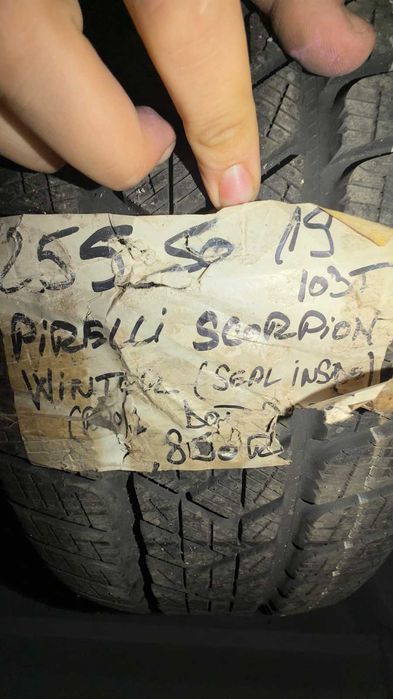 255 50 19
103T
PIRELLI SCORPION
WINTER (SEAL INSIDE)
DOT